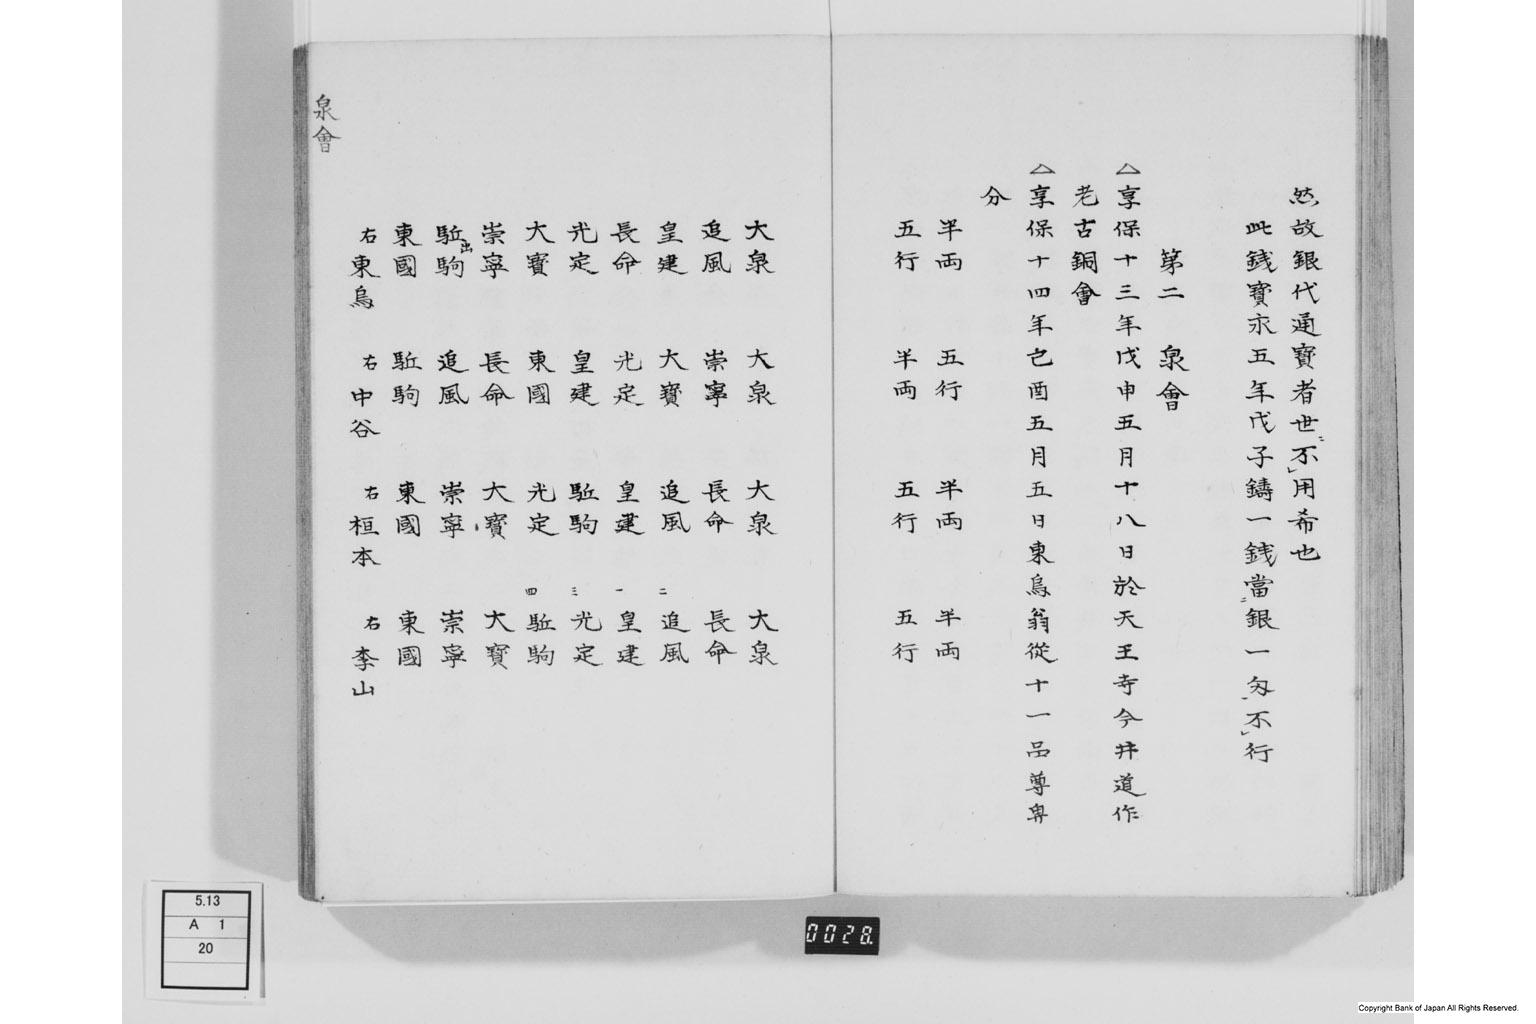 然故銀代通寶者世ニ不レ用希也
此銭寶永五年戊子鑄一銭當ニ銀一匁不レ行
第二 泉會
△享保十三年戊申五月十八日於天王寺今井道作
老古銅會
△享保十四年己酉五月五日東烏翁従十一品尊卑
分
半両 五行 半両 半両
五行 半両 五行 五行
大泉 大泉 大泉 大泉
追風 崇寧 長命 長命
皇建 大寳 追風 二 追風
長命 光定 皇建 一 皇建
光定 皇建 駈駒 三 光定
大寳 東國 光定 四 駈駒
崇寧 長命 大寳 大寳
駈出駒 追風 崇寧 崇寧
東國 駈駒 東國 東國
右東烏 右中谷 右桓本 右李山
泉會
5.13
A 1
20
0028.
Copyright Bank of Japan All Rights Reserved.